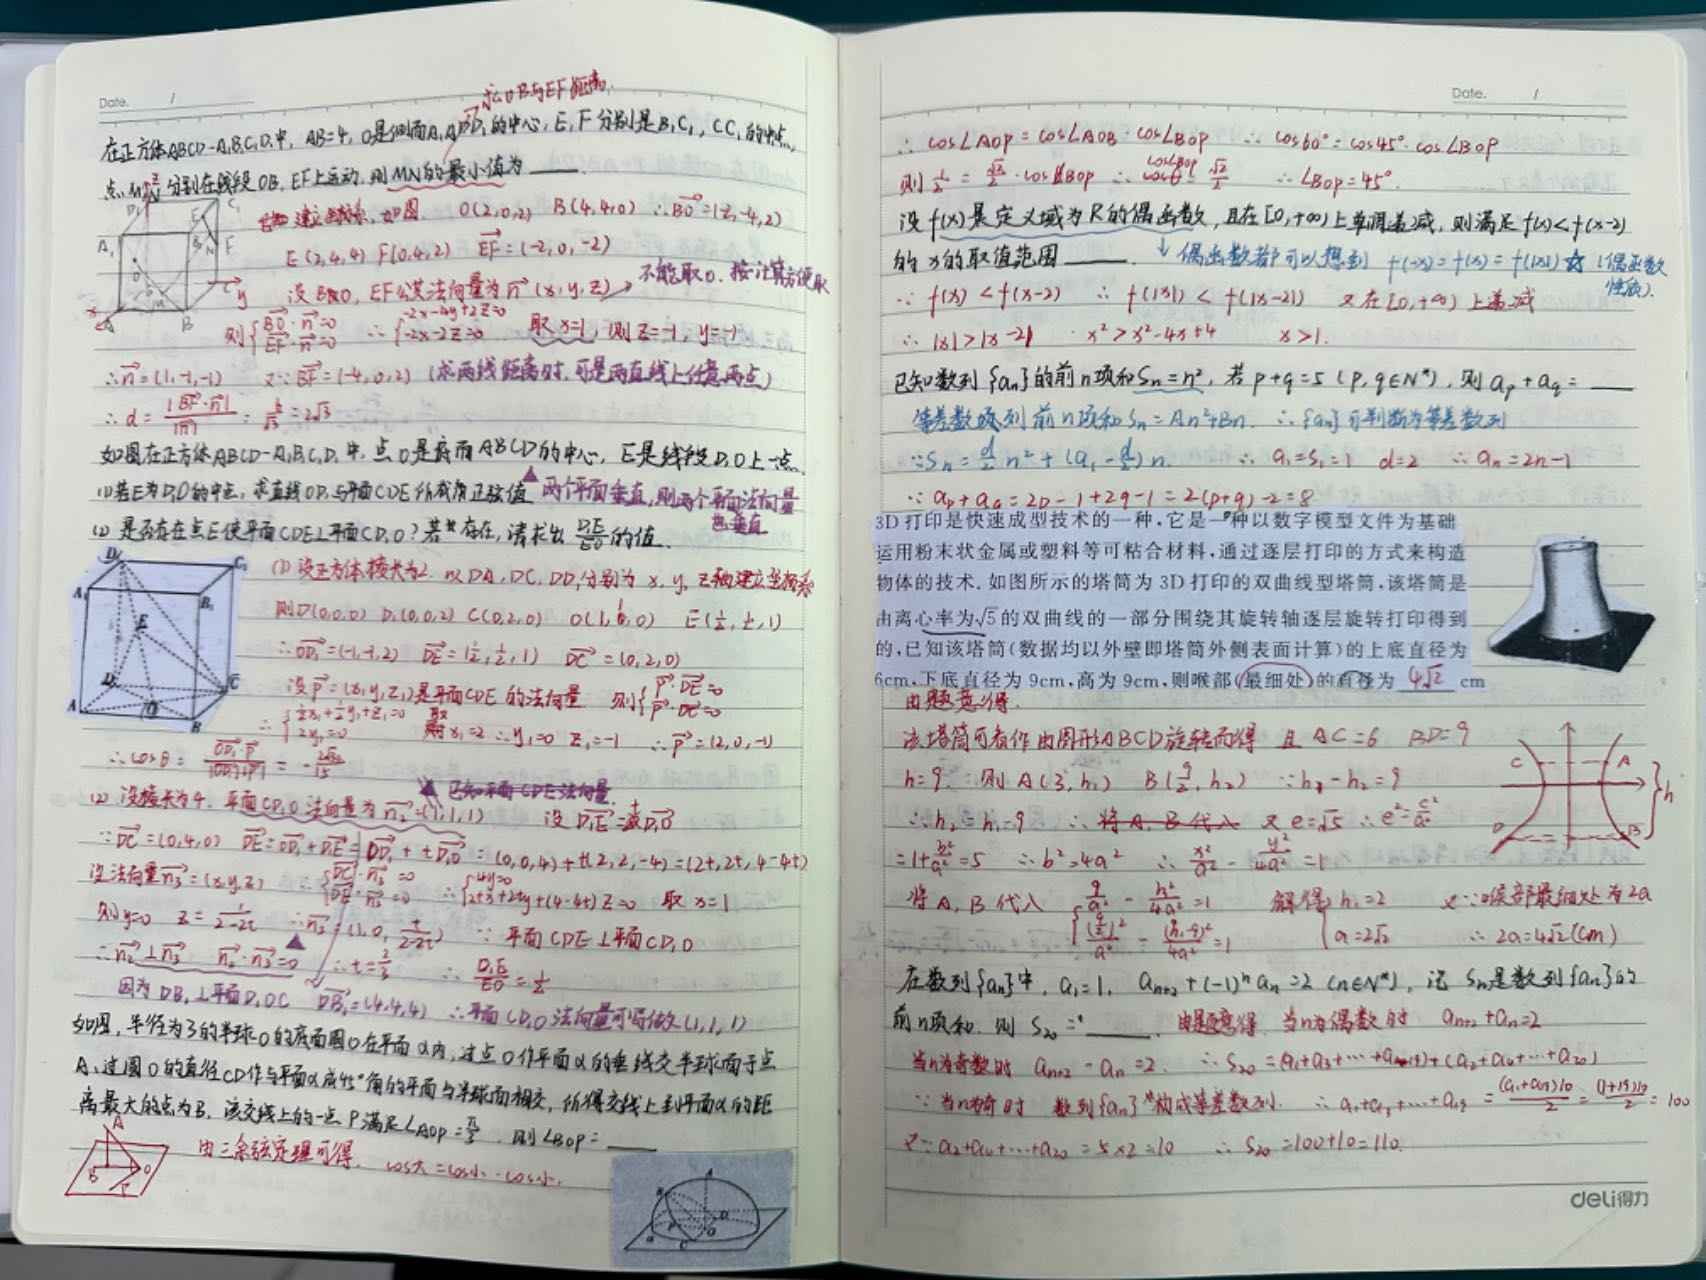 Date. /
求OB与EF距离.
在正方体ABCD-A₁B₁C₁D₁中, AB=4, O是侧面A₁ADD₁的中心, E,F分别是B₁C₁, CC₁的中点,
点M,N分别在线段OB, EF上运动, 则MN的最小值为
建立坐标系,如图. O(2,0,2) B(4,4,0) ∴BO=(-2,-4,2)
E(2,4,4) F(0,4,2) EF=(-2,0,-2)
设BO, EF公共法向量为n(x,y,z) 不能取0. 按计算方便取
则{BO·n=0 EF·n=0 ∴{-2x-4y+2z=0 -2x-2z=0 取x=1, 则z=-1, y=-1
∴n=(1,-1,-1) 又∵BF=(-4,0,2) (求两线距离时,可是两直线上任意两点)
∴d=|BF·n|/|n|=6/√3=2√3
如图在正方体ABCD-A₁B₁C₁D₁中, 点O是底面ABCD的中心, E是线段D₁O上一点.
(1)若E为D₁O的中点, 求直线OD₁与平面CDE所成角正弦值 ▲两个平面垂直,则两个平面法向量也垂直
(2) 是否存在点E使平面CDE⊥平面CD₁O? 若存在, 请求出D₁E/EO的值.
(1) 设正方体棱长为2. 以DA, DC, DD₁分别为x, y, z轴建立坐标系
则D(0,0,0) D₁(0,0,2) C(0,2,0) O(1,1,0) E(½,½,1)
∴OD₁=(-1,-1,2) DE=(½,½,1) DC=(0,2,0)
设p=(x₁,y₁,z₁)是平面CDE的法向量 则{p·DE=0 p·DC=0
∴{½x₁+½y₁+z₁=0 2y₁=0 取x₁=2 ∴y₁=0 z₁=-1 ∴p=(2,0,-1)
∴cosθ=OD₁·p/|OD₁||p|=-2√30/15
▲已知平面CDE法向量.
(2) 设棱长为4. 平面CD₁O法向量为n₂=(1,1,1) 设D₁E=tD₁O
∵DC=(0,4,0) DE=DD₁+D₁E=DD₁+tD₁O=(0,0,4)+t(2,2,-4)=(2t,2t,4-4t)
设法向量n₃=(x,y,z) ∴{DC·n₃=0 DE·n₃=0 ∴{4y=0 2tx+2ty+(4-4t)z=0 取x=1
则y=0 z=t/(2-2t) ∴n₃=(1,0,t/(2-2t)) ∵平面CDE⊥平面CD₁O
∴n₂⊥n₃ n₂·n₃=0 ∴t=2/3 ∴D₁E/EO=½
因为DB₁⊥平面D₁OC DB₁=(4,4,4) ∴平面CD₁O法向量可写做(1,1,1)
如图, 半径为3的半球O的底面圆O在平面α内, 过点O作平面α的垂线交半球面于点
A, 过圆O的直径CD作与平面α成45°角的平面与半球面相交, 所得交线上到平面α的距
离最大的点为B, 该交线上的一点P满足∠AOP=π/3. 则∠BOP=
由三余弦定理可得. cos大=cos小·cos小.
Date. /
∴cos∠AOP=cos∠AOB·cos∠BOP ∴cos60°=cos45°·cos∠BOP
则½=√2/2·cos∠BOP ∴cos∠BOP=√2/2 ∴∠BOP=45°.
设f(x)是定义域为R的偶函数, 且在[0,+∞)上单调递减, 则满足f(x)<f(x-2)
的x的取值范围 ↓偶函数都可以想到 f(-x)=f(x)=f(|x|) ☆(偶函数性质).
∵f(x)<f(x-2) ∴f(|x|)<f(|x-2|) 又在[0,+∞)上递减
∴|x|>|x-2| x²>x²-4x+4 x>1.
已知数列{an}的前n项和Sn=n², 若p+q=5 (p,q∈N*), 则ap+aq=
等差数列前n项和Sn=An²+Bn. ∴{an}可判断为等差数列
∵Sn=d/2 n²+(a₁-d/2)n. ∴a₁=S₁=1 d=2 ∴an=2n-1
∵ap+aq=2p-1+2q-1=2(p+q)-2=8
3D打印是快速成型技术的一种,它是一种以数字模型文件为基础
运用粉末状金属或塑料等可粘合材料,通过逐层打印的方式来构造
物体的技术.如图所示的塔筒为3D打印的双曲线型塔筒,该塔筒是
由离心率为√5的双曲线的一部分围绕其旋转轴逐层旋转打印得到
的,已知该塔筒(数据均以外壁即塔筒外侧表面计算)的上底直径为
6cm,下底直径为9cm,高为9cm,则喉部(最细处)的直径为 4√2 cm
由题意得.
该塔筒可看作由图形ABCD旋转而得 且AC=6 BD=9
h=9 ∴则A(3,h₁) B(9/2,h₂) ∵h₁-h₂=9
∴h₂=h₁-9 ∴将A,B代入 又e=√5 ∴e²=c²/a²
=1+b²/a²=5 ∴b²=4a² ∴x²/a²-y²/4a²=1
将A,B代入 {9/a²-h₁²/4a²=1 (9/2)²/a²-(h₁-9)²/4a²=1 解得{h₁=2 a=2√2 又∵喉部最细处为2a ∴2a=4√2(cm)
在数列{an}中, a₁=1, an+2+(-1)ⁿan=2 (n∈N*), 记Sn是数列{an}的
前n项和. 则S₂₀= 由题意得 当n为偶数时 an+2+an=2
当n为奇数时 an+2-an=2. ∴S₂₀=(a₁+a₃+…+a₁₉)+(a₂+a₄+…+a₂₀)
∵当n为奇时 数列{an}构成等差数列. ∴a₁+a₃+…+a₁₉=(a₁+a₁₉)10/2=(1+19)10/2=100
又∵a₂+a₄+…+a₂₀=5×2=10 ∴S₂₀=100+10=110.
deli得力